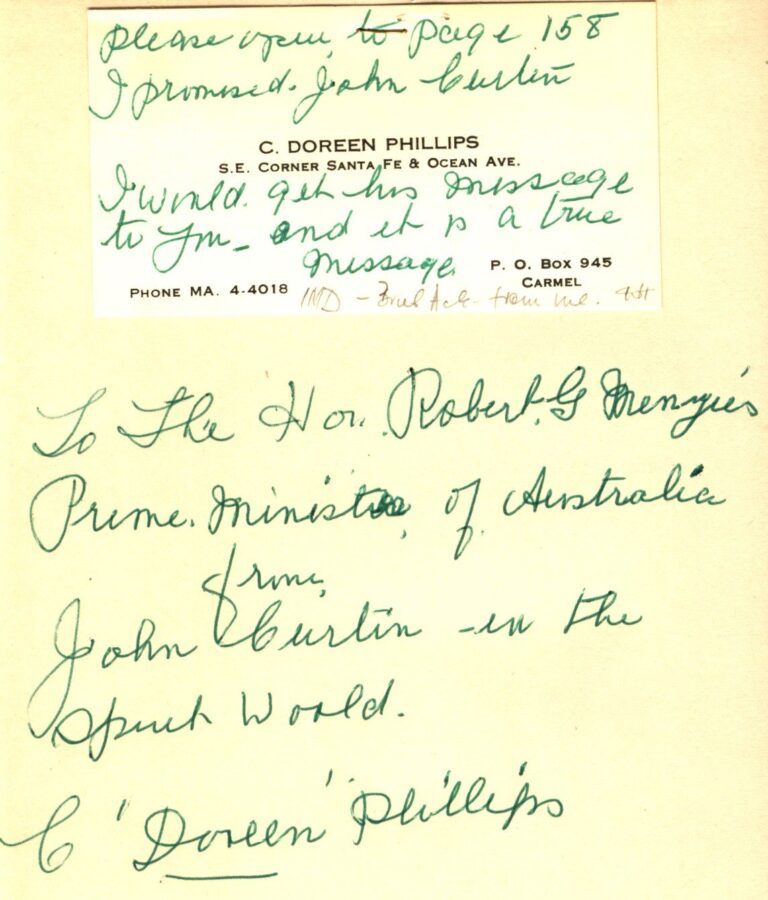 please open to page 158
I promised John Curtin
C. DOREEN PHILLIPS
S.E. CORNER SANTA FE & OCEAN AVE.
I would get his message
to you - and it is a true
message
P. O. BOX 945
PHONE MA. 4-4018
CARMEL
from me.
To The Hon. Robert. G Menzies
Prime. Minister, of Australia
from,
John Curtin - in the
Spirit World.
C 'Doreen' Phillips